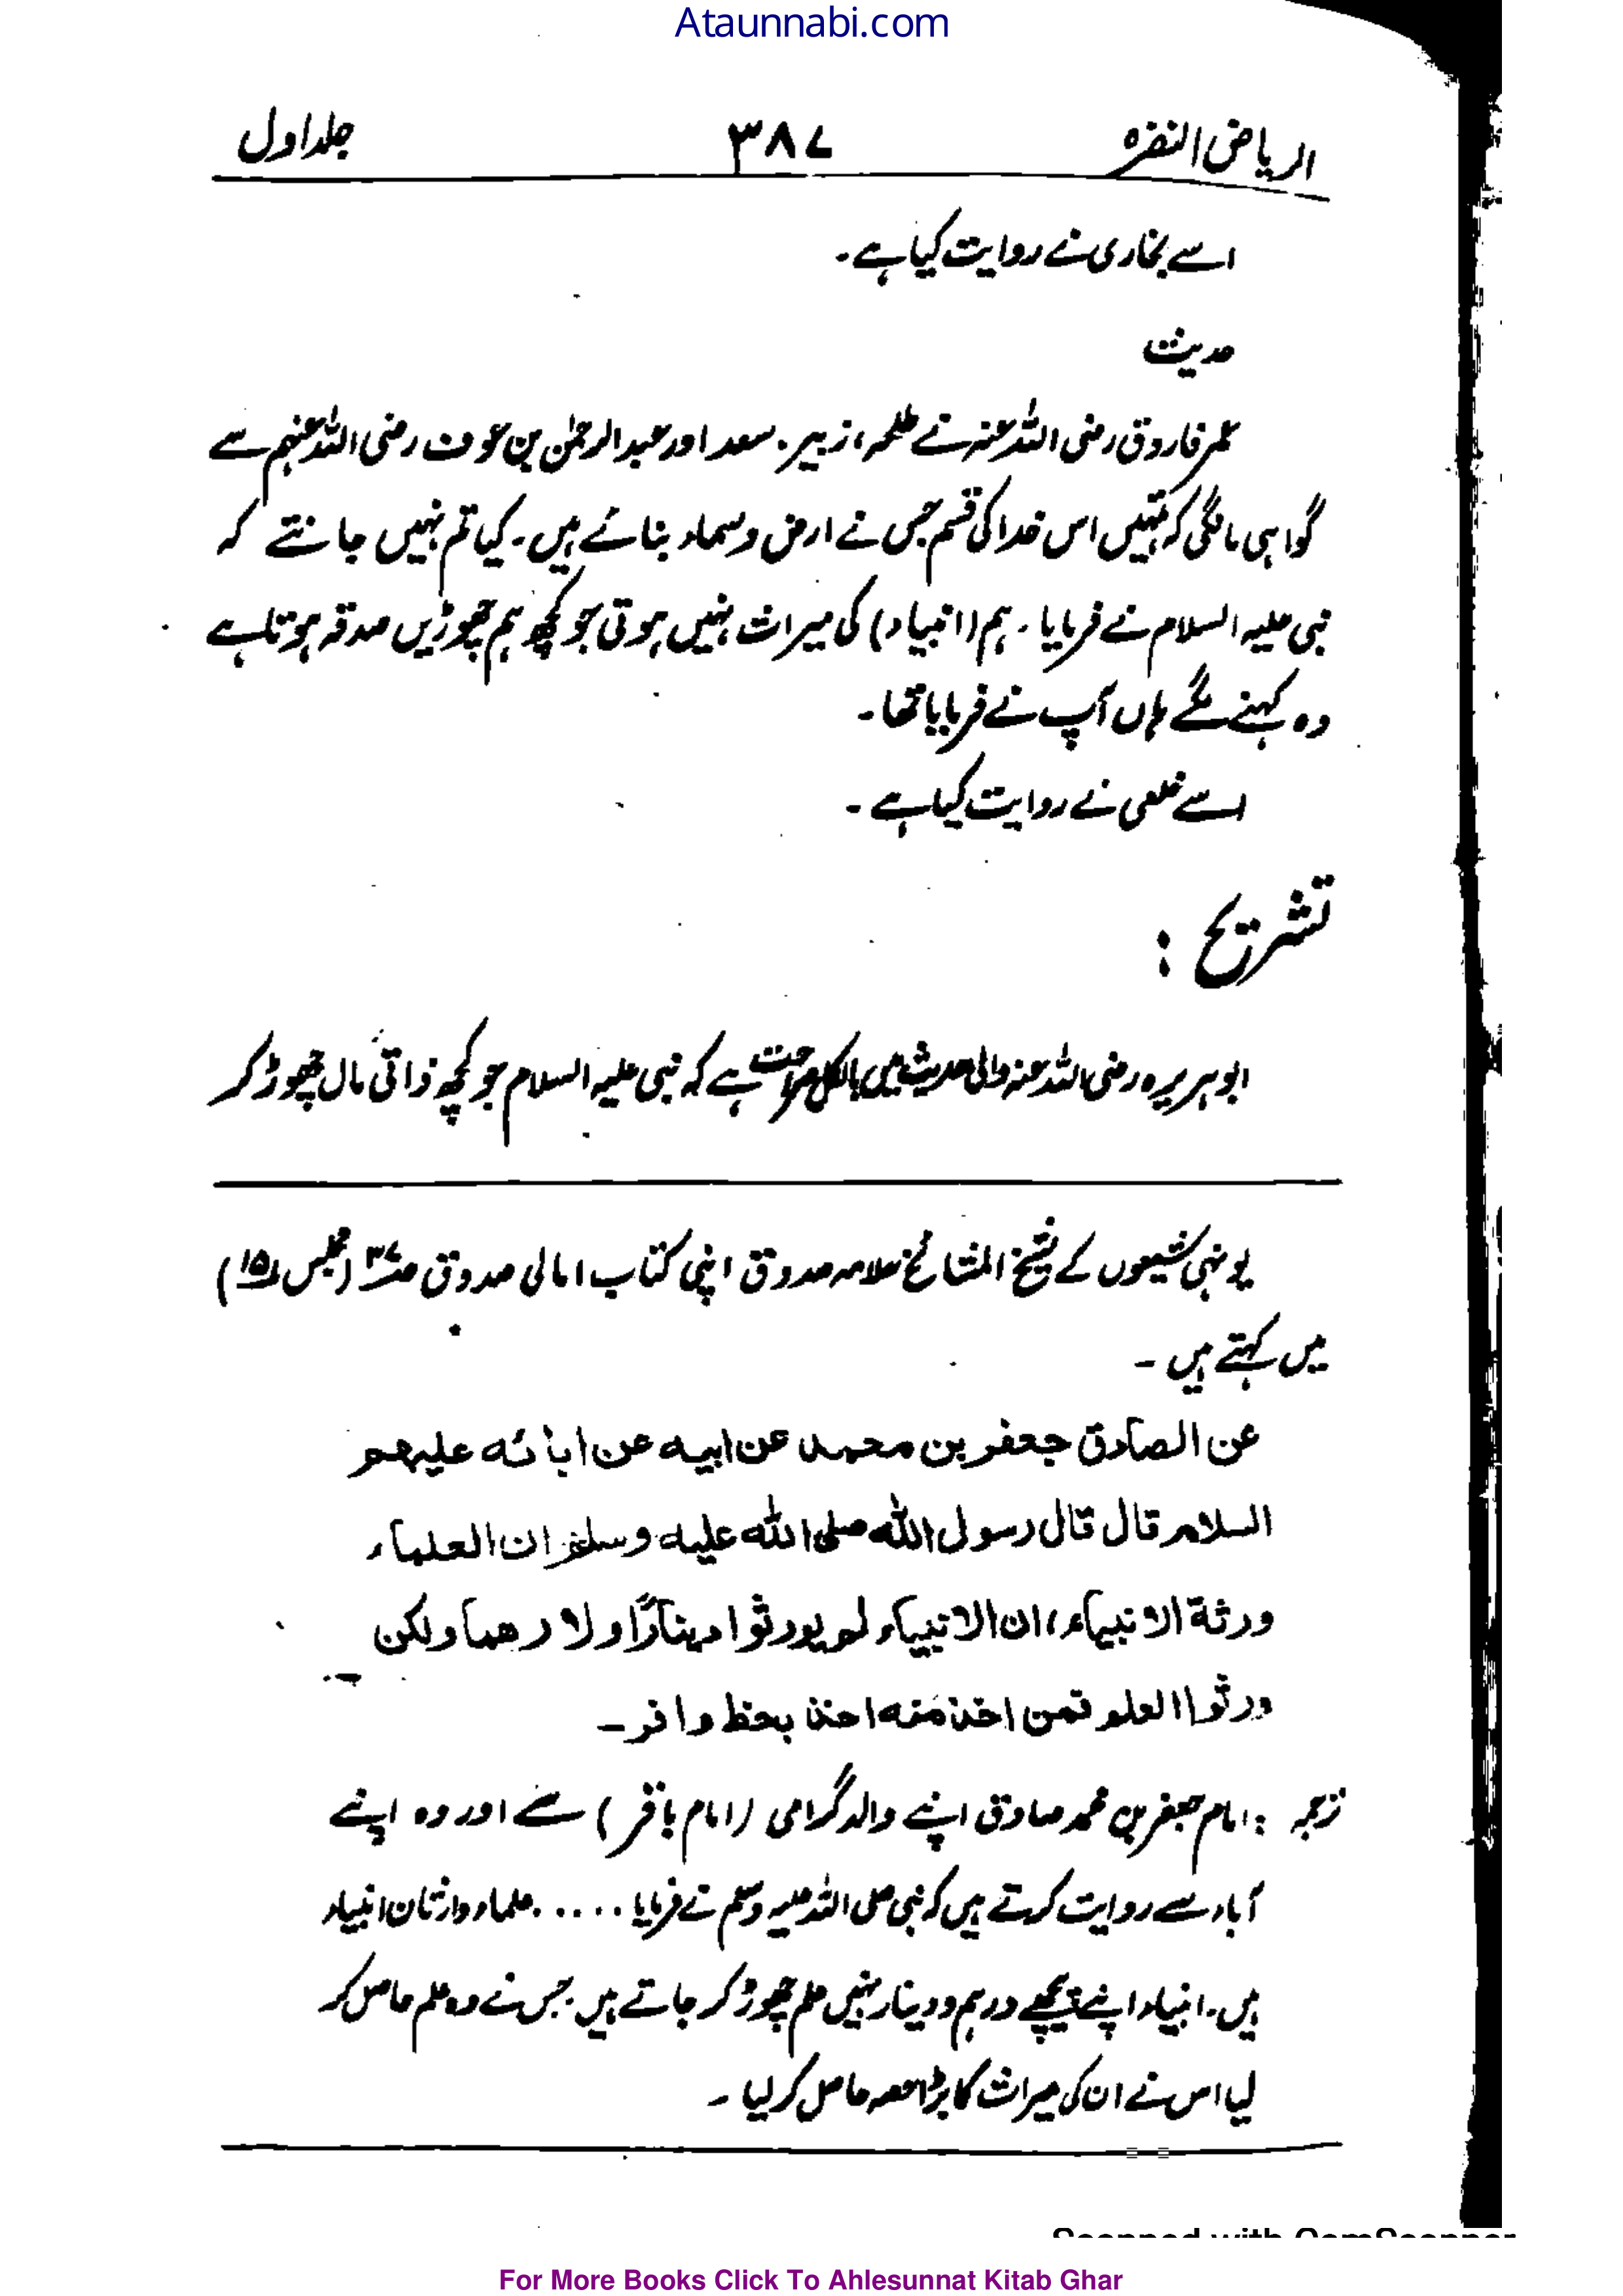 Ataunnabi.com
الریاض النضرہ ۳۸۷ جلد اول
اسے بخاری نے روایت کیا ہے۔
حدیث
عمر فاروق رضی اللہ عنہ نے طلحہ، زبیر۔ سعد اور عبدالرحمٰن بن عوف رضی اللہ عنہم سے
گواہی مانگی کہ تمہیں اس خدا کی قسم جس نے ارض و سماء بنائے ہیں۔ کیا تم نہیں جانتے کہ
نبی علیہ السلام نے فرمایا۔ ہم (انبیاء) کی میراث نہیں ہوتی جو کچھ ہم چھوڑیں صدقہ ہوتا ہے
وہ کہنے لگے ہاں آپ نے فرمایا تھا۔
اسے خلعی نے روایت کیا ہے۔
تشریح :
ابوہریرہ رضی اللہ عنہ والی حدیث میں بالکل صراحت ہے کہ نبی علیہ السلام جو کچھ ذاتی مال چھوڑ کر
یونہی شیعوں کے شیخ المشائخ علامہ صدوق اپنی کتاب امالی صدوق ص۳۷ (مجلس ۱۵)
میں کہتے ہیں۔
عن الصادق جعفر بن محمد عن ابیہ عن ابائہ علیہم
السلام قال قال رسول اللہ صلی اللہ علیہ وسلم ان العلماء
ورثۃ الانبیاء، ان الانبیاء لم یورثوا دینارًا ولا درھما ولکن
ورثوا العلم فمن اخذ منہ اخذ بحظ وافر۔
ترجمہ : امام جعفر بن محمد صادق اپنے والد گرامی (امام باقر) سے اور وہ اپنے
آباء سے روایت کرتے ہیں کہ نبی صلی اللہ علیہ وسلم نے فرمایا ..... علماء وارثان انبیاء
ہیں۔ انبیاء اپنے پیچھے درہم و دینار نہیں علم چھوڑ کر جاتے ہیں۔ جس نے وہ علم حاصل کر
لیا اس نے ان کی میراث کا بڑا حصہ حاصل کر لیا۔
Scanned with CamScanner
For More Books Click To Ahlesunnat Kitab Ghar